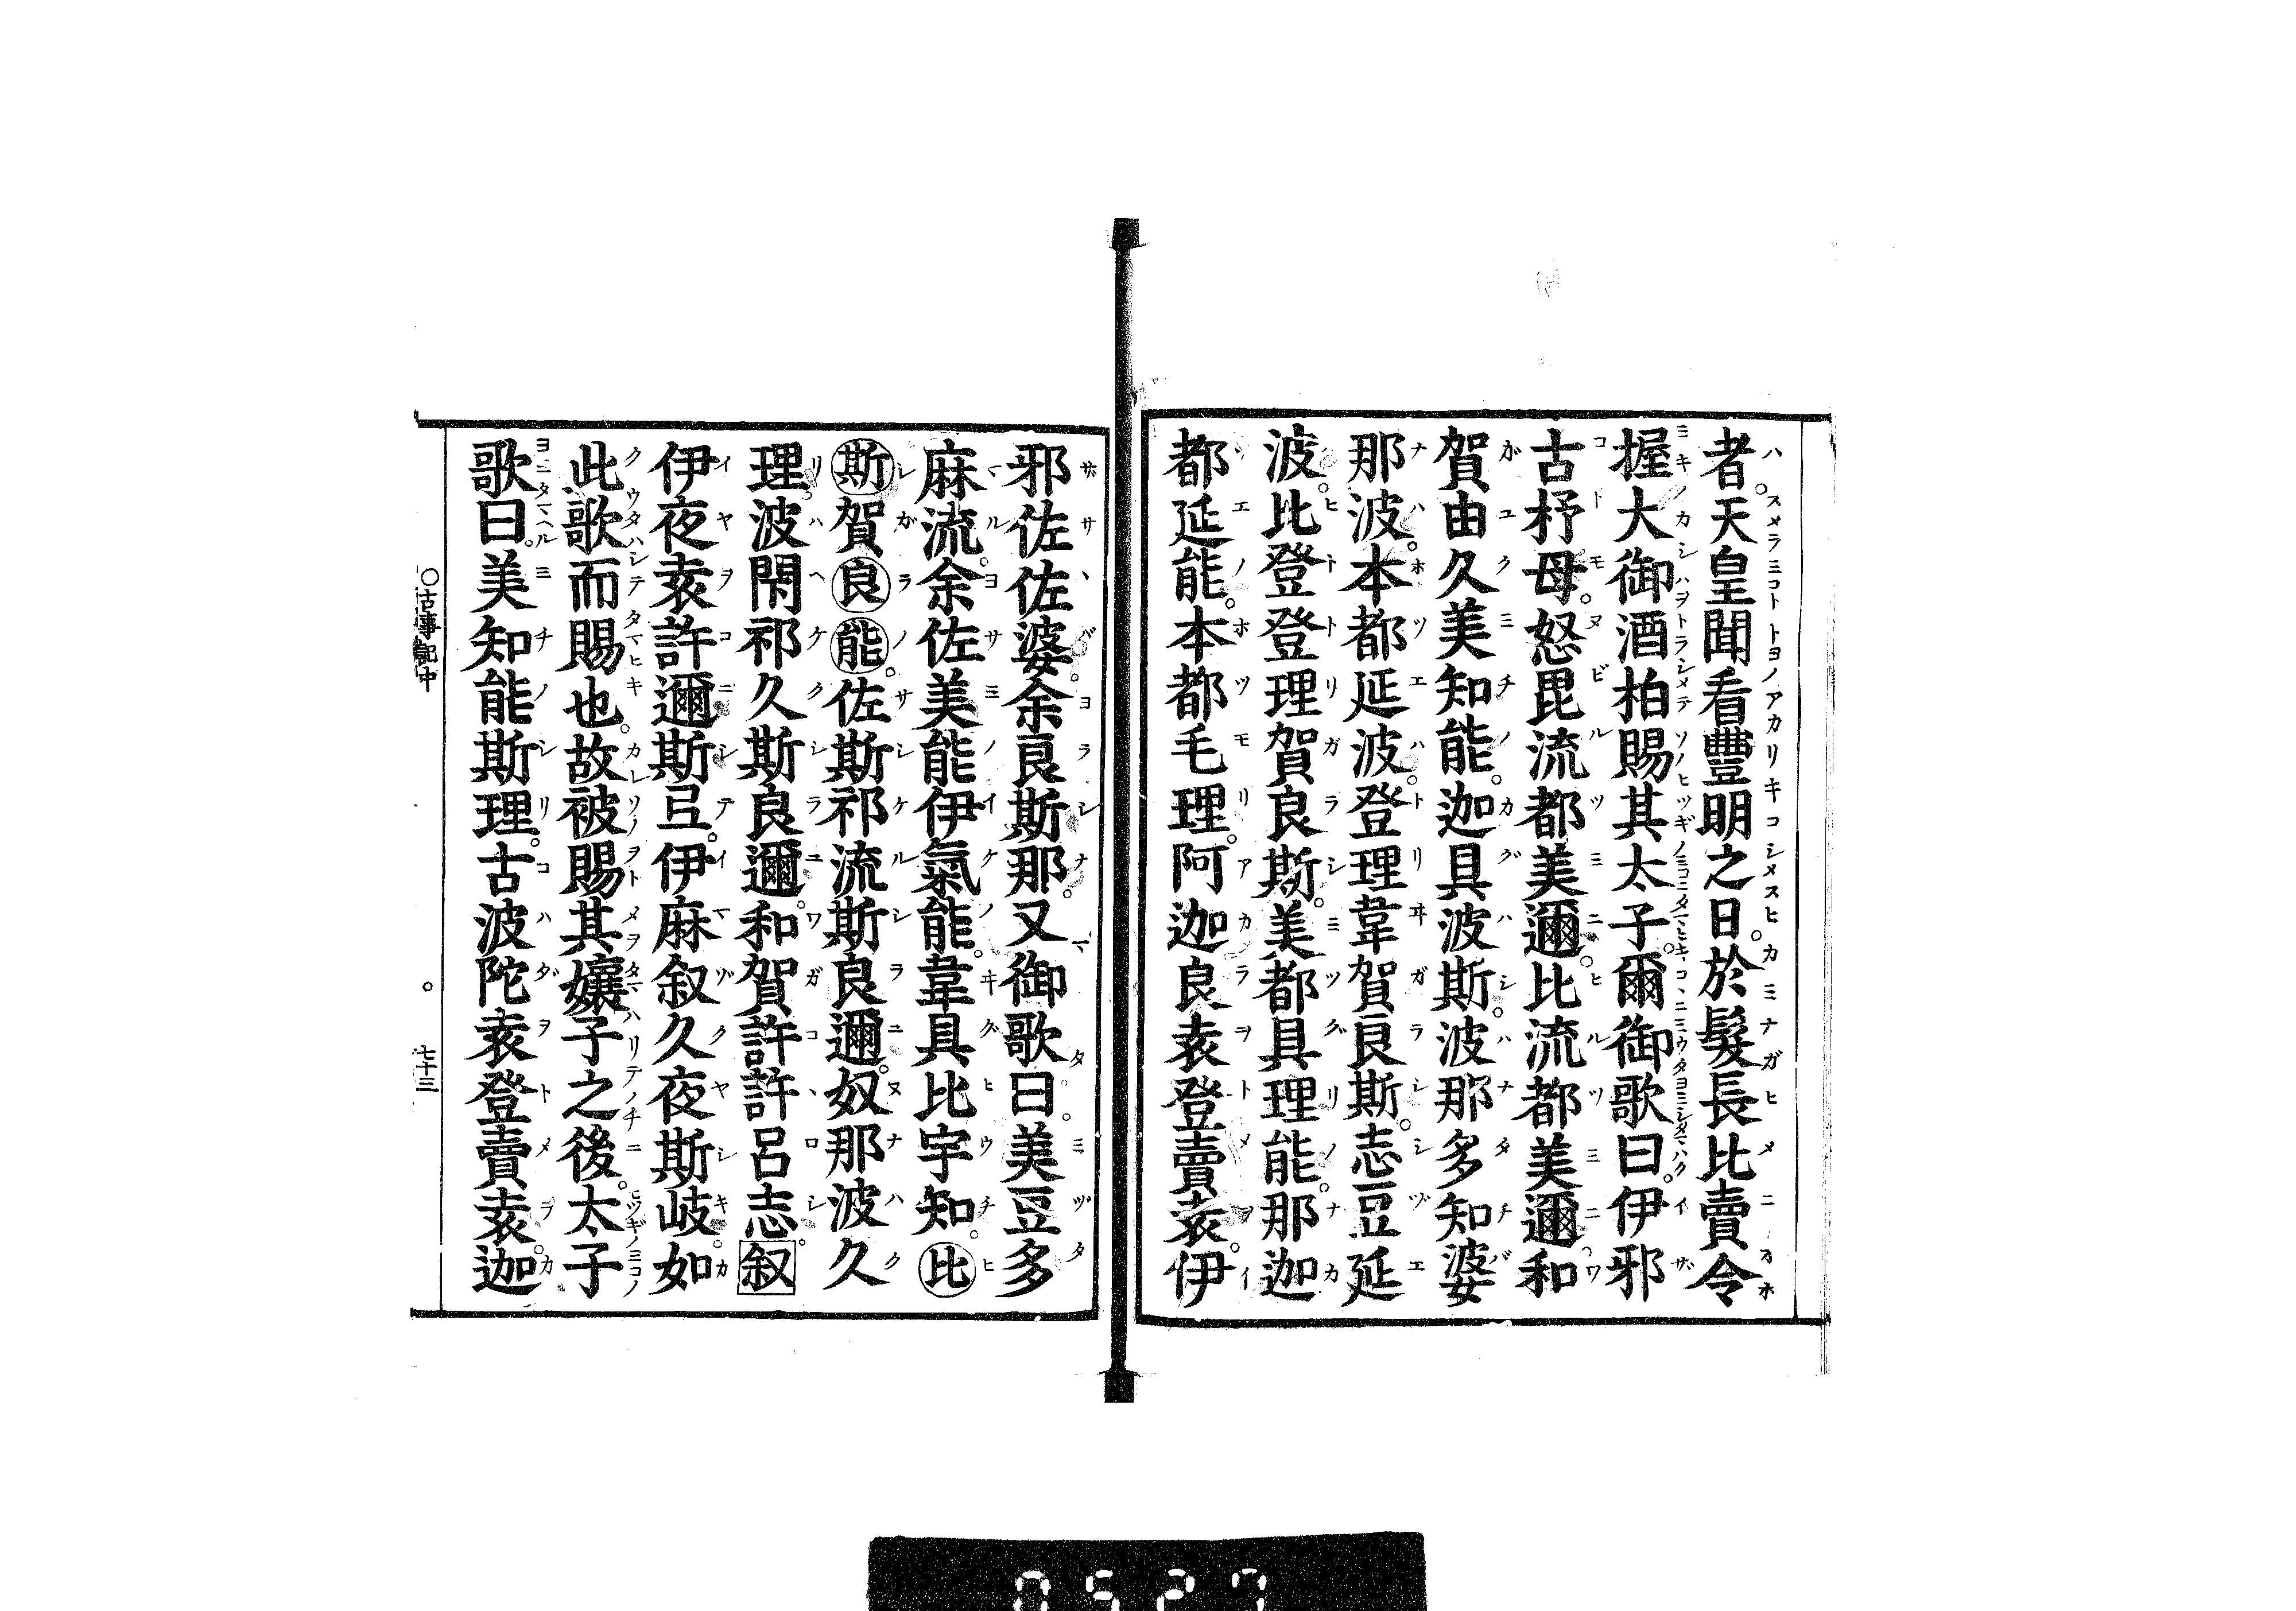 者。天皇聞看豐明之日。於髮長比賣令
握大御酒柏賜其太子。爾御歌曰。伊邪
古杼母。怒毘流都美邇。比流都美邇。和
賀由久美知能。迦具波斯。波那多知婆
那波。本都延波。登理韋賀良斯。志豆延
波。比登登理賀良斯。美都具理能。那迦
都延能。本都毛理。阿迦良袁登賣袁。伊
邪佐佐婆。余良斯那。又御歌曰。美豆多
麻流。余佐美能伊氣能。韋具比宇知。比
斯賀良能。佐斯祁流斯良邇。奴那波久
理。波閇祁久斯良邇。和賀許許呂志。叙
伊夜袁許邇斯弖。伊麻叙久夜斯岐。如
此歌而賜也。故被賜其孃子之後。太子
歌曰。美知能斯理。古波陀袁登賣袁。迦
〇古事記中
七十三
0527